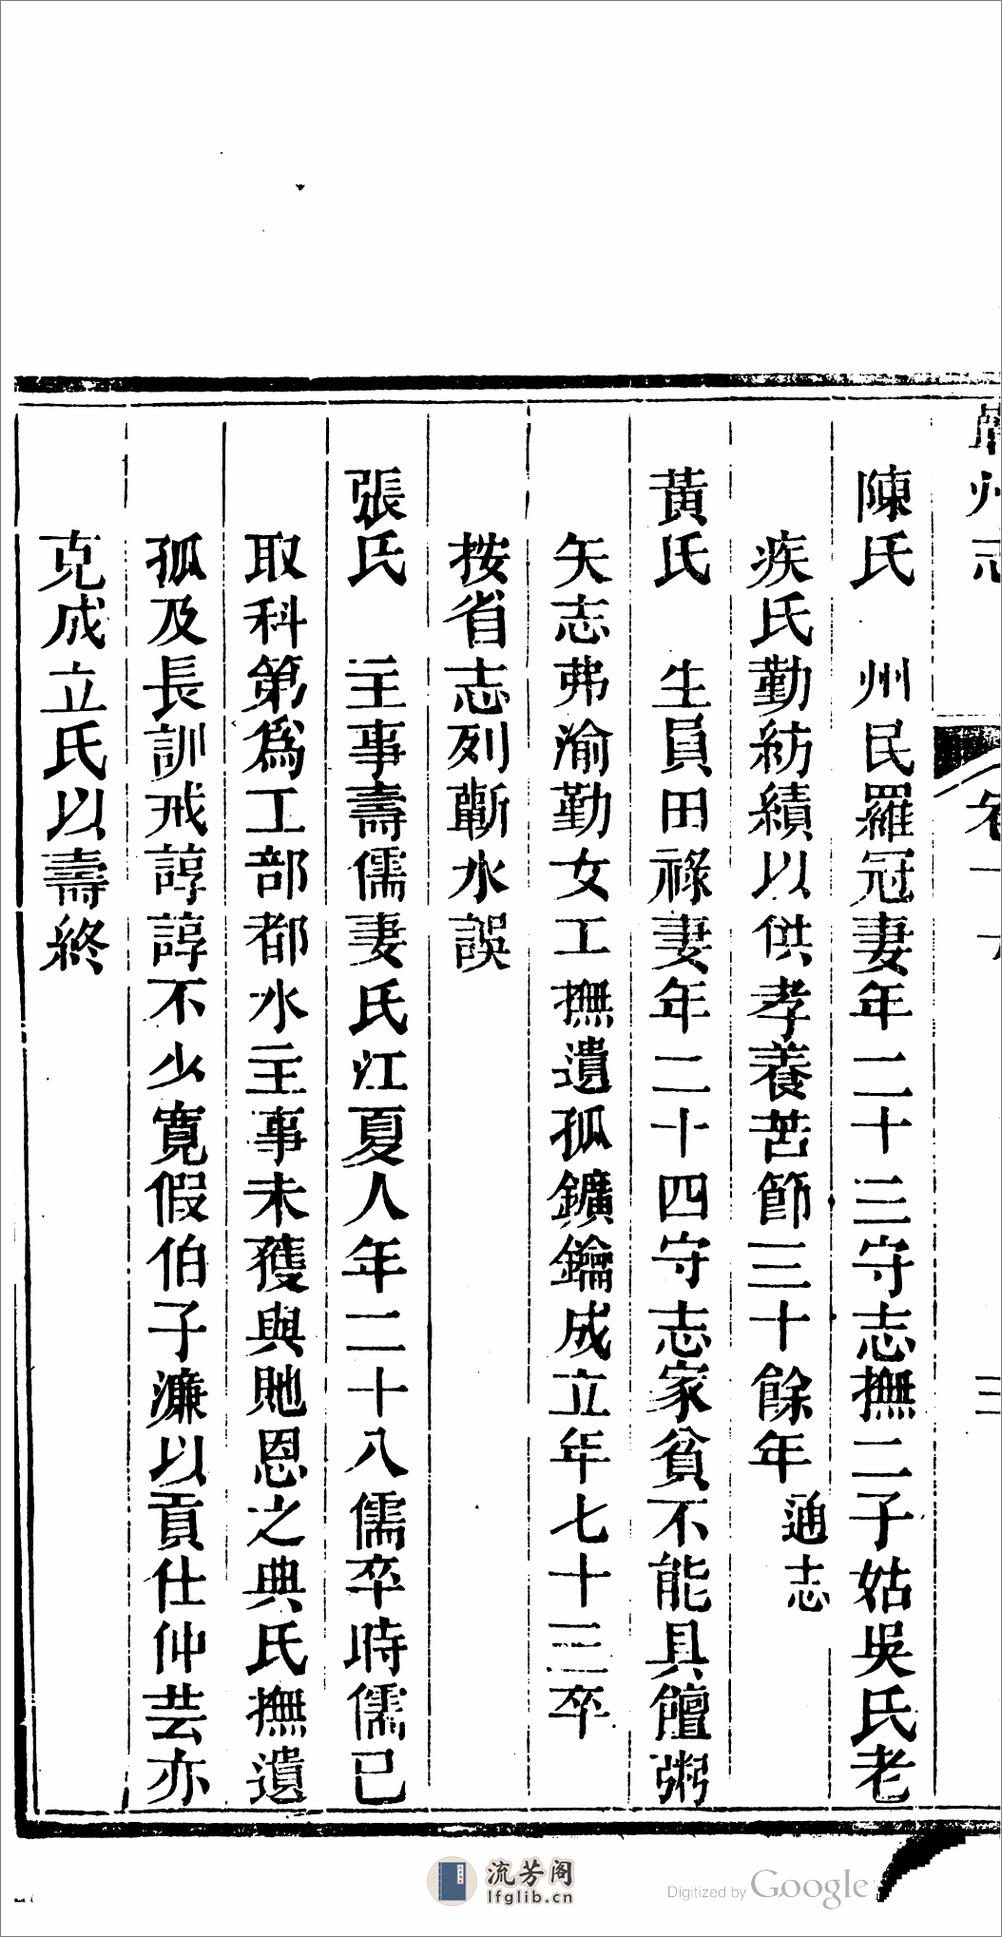 州志
卷十
三
陳氏　州民羅冠妻年二十三守志撫二子姑吳氏老
疾氏勤紡績以供孝養苦節三十餘年通志
黃氏　生員田祿妻年二十四守志家貧不能具饘粥
矢志弗渝勤女工撫遺孤鑛鑰成立年七十三卒
按省志列蘄水誤
張氏　主事壽儒妻氏江夏人年二十八儒卒時儒已
取科第爲工部都水主事未獲與貤恩之典氏撫遺
孤及長訓戒諄諄不少寬假伯子濂以貢仕仲芸亦
克成立氏以壽終
流芳阁
lfglib.cn
Digitized by Google